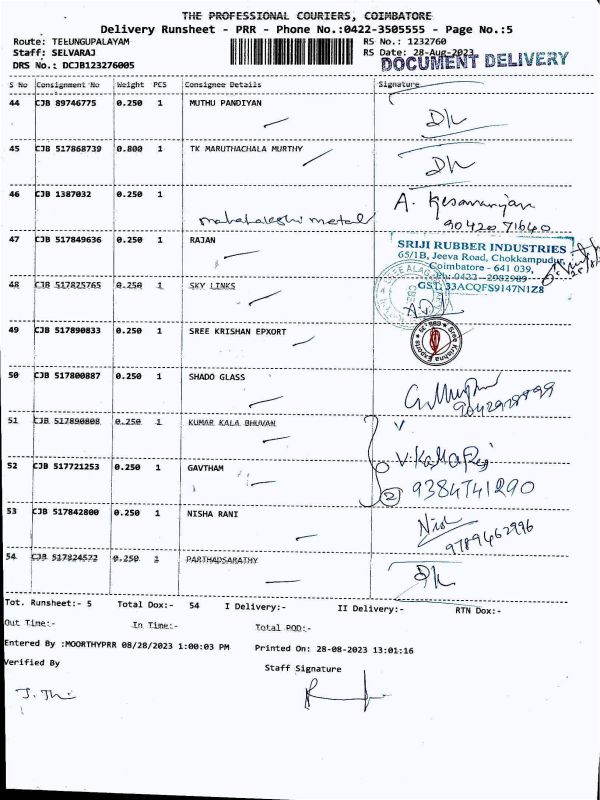 THE PROFESSIONAL COURIERS, COIMBATORE
Delivery Runsheet - PRR - Phone No.:0422-3505555 - Page No.:5
Route: TELUNGUPALAYAM RS No.: 1232760
Staff: SELVARAJ RS Date: 28-Aug-2023
DRS No.: DCJB123276005 DOCUMENT DELIVERY
S No Consignment No Weight PCS Consignee Details Signature
44 CJB 89746775 0.250 1 MUTHU PANDIYAN
45 CJB 517868739 0.800 1 TK MARUTHACHALA MURTHY
46 CJB 1387032 0.250 1
mahalakshmi metal
90420 71640
47 CJB 517849636 0.250 1 RAJAN
SRIJI RUBBER INDUSTRIES
65/1B, Jeeva Road, Chokkampudur,
Coimbatore - 641 039,
Ph: 0422 - 2982989
GST: 33ACQFS9147N1Z8
48 CJB 517825765 0.250 1 SKY LINKS
49 CJB 517890833 0.250 1 SREE KRISHAN EPXORT
Sree Krishna Exports
50 CJB 517800887 0.250 1 SHADO GLASS
51 CJB 517890808 0.250 1 KUMAR KALA BHUVAN
52 CJB 517721253 0.250 1 GAVTHAM
2 9384741290
53 CJB 517842800 0.250 1 NISHA RANI
9789462996
54 CJB 517824572 0.250 1 PARTHADSARATHY
Tot. Runsheet:- 5 Total Dox:- 54 I Delivery:- II Delivery:- RTN Dox:-
Out Time:- In Time:- Total POD:-
Entered By :MOORTHYPRR 08/28/2023 1:00:03 PM Printed On: 28-08-2023 13:01:16
Verified By Staff Signature